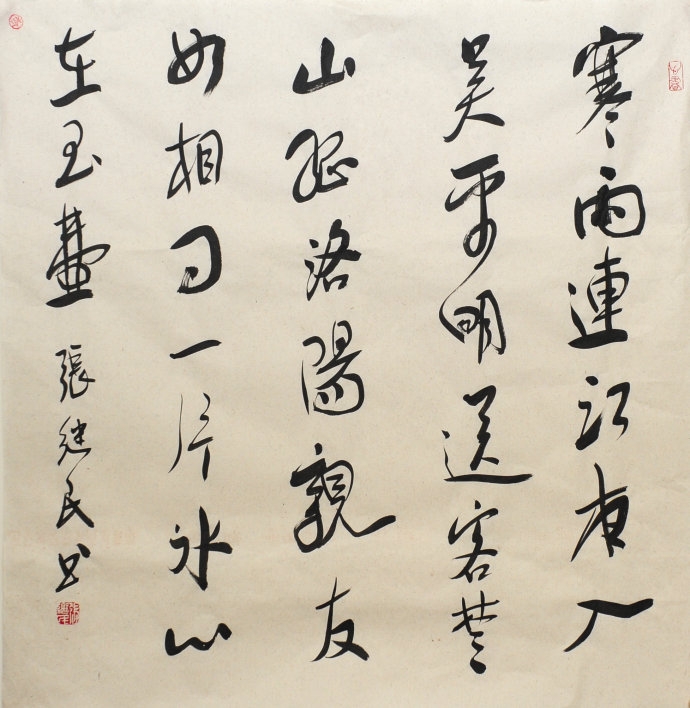 寒雨連江夜入
吳平明送客楚
山孤洛陽親友
如相问一片冰心
在玉壺
張继民书